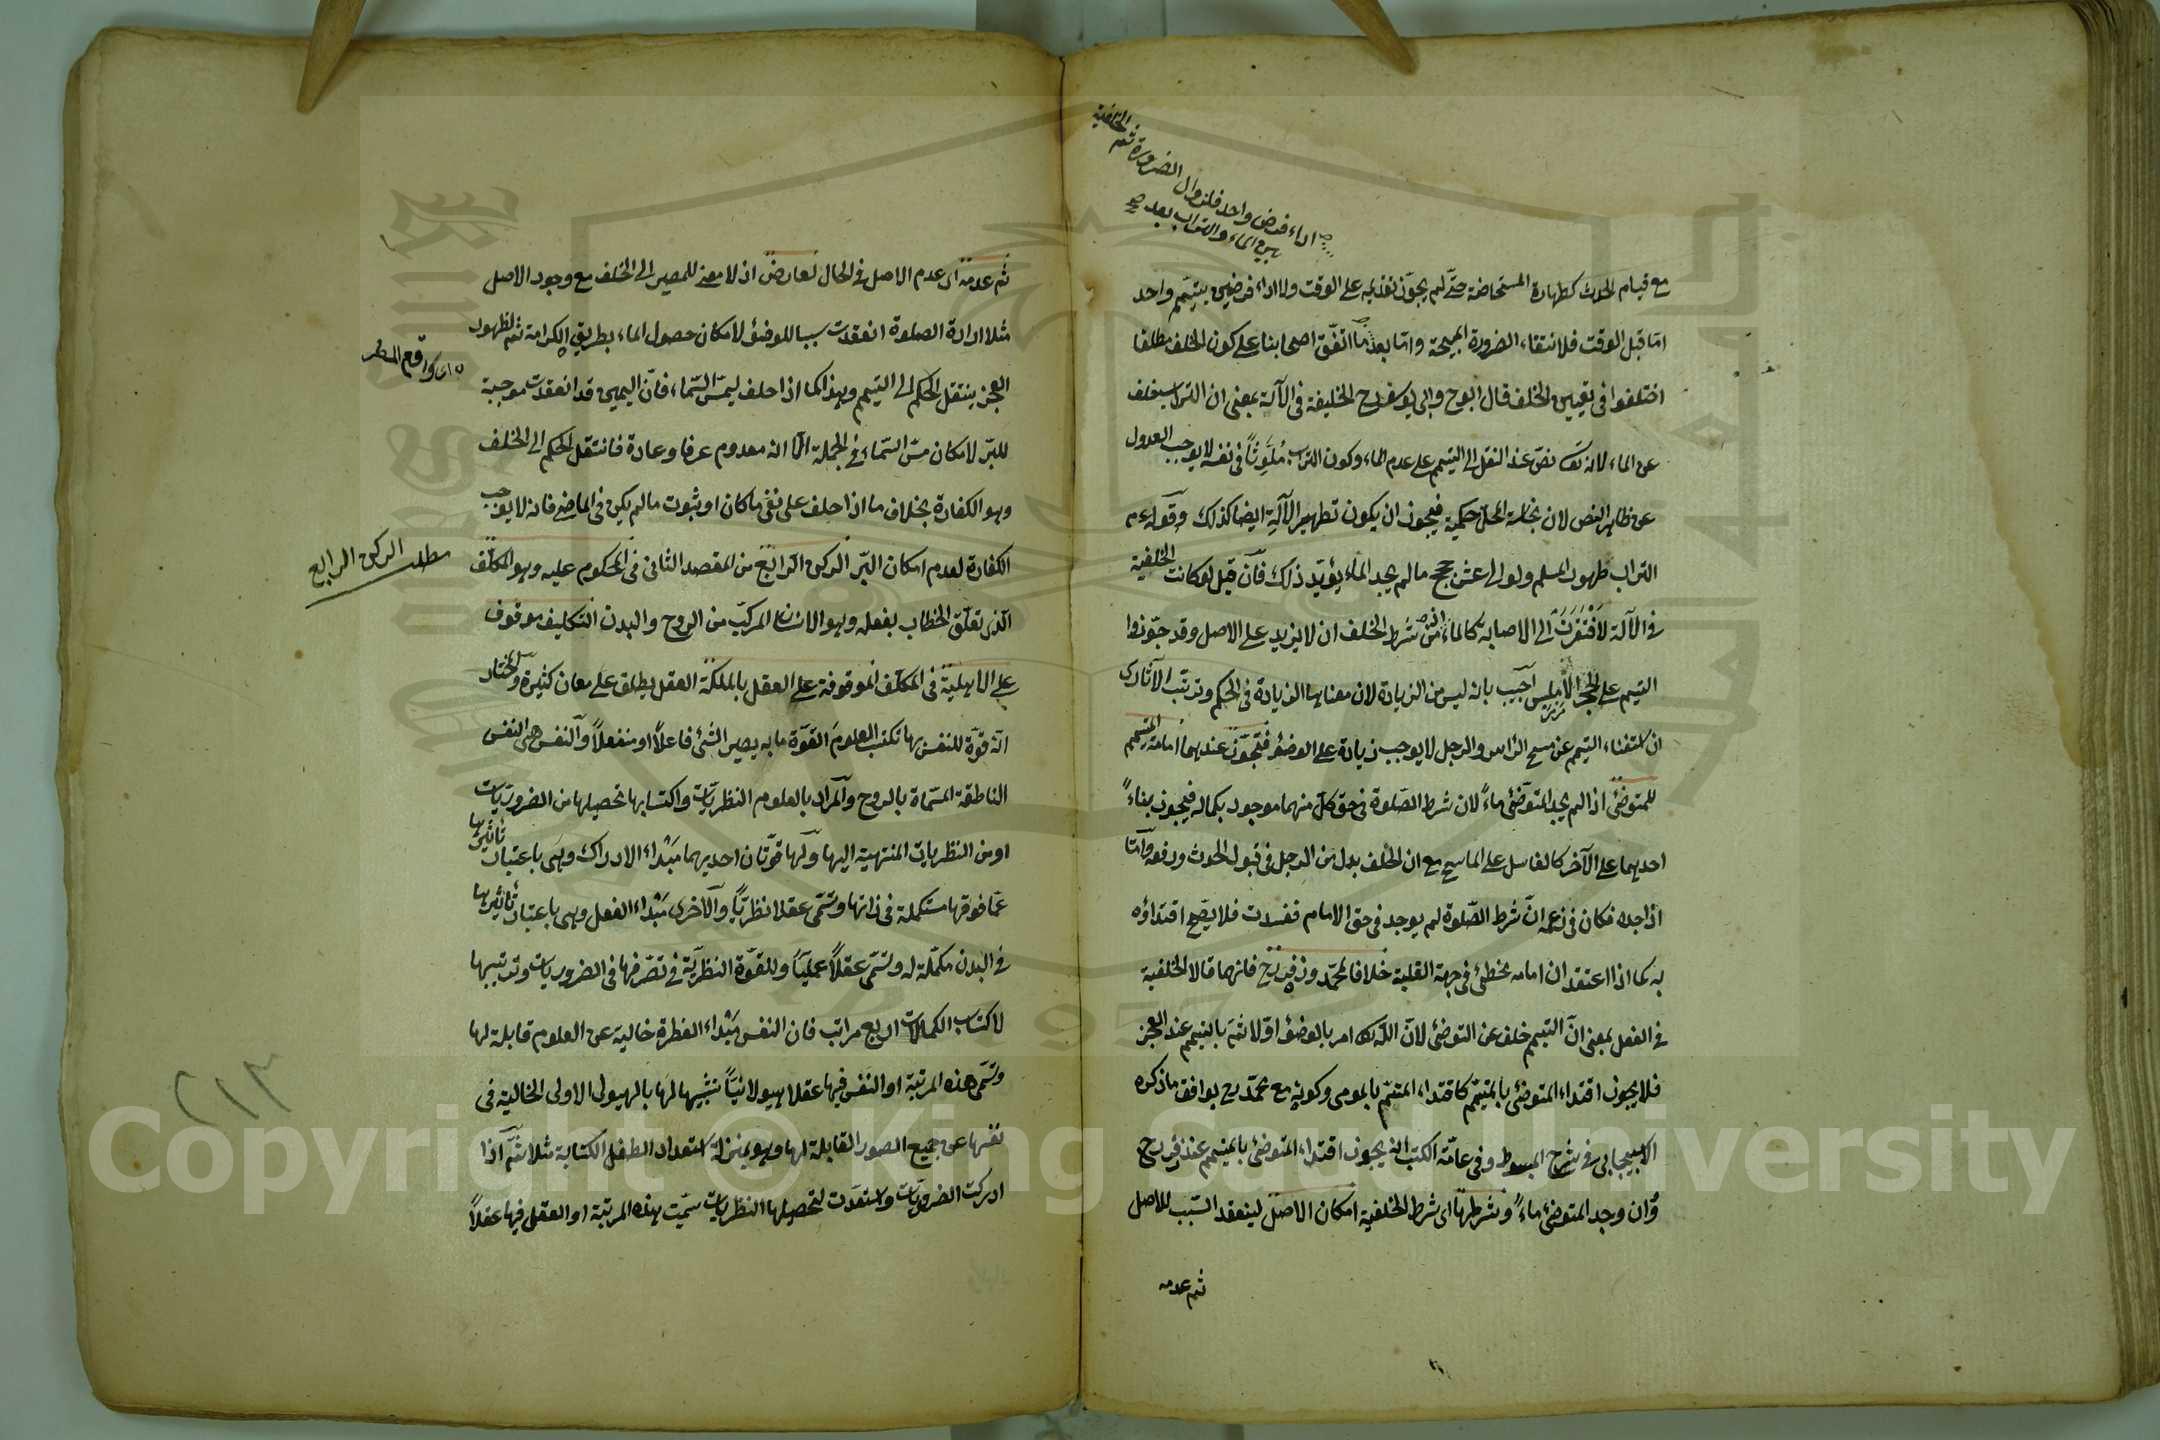 اداء فرض واحد فلزوال الضرورة ثم الخلفية
بين الماء والتراب بعد صح
مع قيام الحدث كطهارة المستحاضة حتى لم يجوز تقديمه على الوقت ولا اداء فرضين بتيمم واحد
امّا قبل الوقت فلانتفاء الضرورة المبيحة وامّا بعد ما اتفق اصحابنا على كون الخلف مطلقا
اختلفوا فى تعيين الخلف قال ابوح وابى يوسف رح الخليفة فى الآلة بمعنى ان التراب خلف
عن الماء لانه تع نصّ عند النقل الى التيمم على عدم الماء وكون التراب مُلَوِّثاً فى نفسه لا يوجب العدول
عن ظاهر النص لان نجاسة المحلّ حكمية فيجوز ان يكون تطهير الآلة ايضا كذلك وقوله عم
التراب طهور المسلم ولو الى عشر حجج ما لم يجد الماء يؤيّد ذلك فآن قيل لو كانت الخلفية
فى الآلة لافتقرت الى الاصابة كالماء من شرط الخلف ان لا يزيد على الاصل وقد جوّزوا
التيمم على الحجر الاملس آجيب بانه ليس من الزيادة لان معناها الزيادة فى الحكم وترتّب الآثار
ان استغناء التيمم عن مسح الرأس والرجل لا يوجب زيادة على الوضؤ فتجوز عندهما امامة المتيمم
للمتوضئ اذا لم يجد المتوضئ ماءً لان شرط الصّلوة فى حق كلّ منهما موجود بكماله فيجوز بناءً
احديهما على الآخر كالغاسل على الماسح مع ان الخلف بدل من الرجل فى قبول الحدث ورفعه وآمّا
اذا وجده فكان فى زعمه انّ شرط الصّلوة لم يوجد فى حق الامام ففسدت فلا يصّح اقتداؤه
به كما اذا اعتقد ان امامه مخطئ فى جهة القبلة خلافا لمحمّد وزفر رح فانهما قالا الخلفية
فى الفعل بمعنى انّ التيمم خلف عن التوضئ لانّ اللّه تعالى امر بالوضؤ اوّلا ثمّ بالتيمم عند العجز
فلا يجوز اقتداء المتوضئ بالمتيمّم كاقتداء المتيمّم بالمومى وكونه مع محمّد رح يوافق ما ذكره
الاسبيجابى فى شرح المبسوط وفى عامّة الكتب انه يجوز اقتداء المتوضئ بالمتيمم عند زفر رح
وان وجد المتوضئ ماءً وشرطها اى شرط الخلفية امكان الاصل لينعقد السّبب للاصل
ثم عدمه
ثم عدمه اى عدم الاصل فى الحال لعارض اذ لا معنى للمصير الى الخلف مع وجود الاصل
مثلا ارادة الصلوة انعقدت سببا للوضؤ لامكان حصول الماء بطريق الكرامة ثم لظهور
العجز ينتقل الحكم الى التيمم وهذا كما اذا حلف ليمسّ السّماء فانّ اليمين قد انعقدت موجبة
للبرّ لامكان مسّ السّماء فى الجملة الّا انه معدوم عرفا وعادة فانتقل الحكم الى الخلف
وهو الكفارة بخلاف ما اذا حلف على نفى ما كان او ثبوت ما لم يكن فى الماضى فانه لا يوجب
الكفارة لعدم امكان البّر الركن الرّابع من المقصد الثانى فى المحكوم عليه وهو المكلّف
مطلب الركن الرابع
الّذى تعلّق الخطاب بفعله وهو الانسان المركّب من الروح والبدن التكليف موقوف
على الاهلية فى المكلّف الموقوفة على العقل بالملكة العقل يطلق على معان كثيرة والمختار
انّه قوّة للنفس بها تكتسب العلوم القوّة ما به يصير الشئ فاعلاً او منفعلاً والنفس هى النفس
الناطقة المسمّاة بالروح والمراد بالعلوم النظريّات واكتسابها تحصيلها من الضروريّات
او من النظريات المنتهية اليها ولها قوّتان احديهما مبدا الادراك وهى باعتبار تأثيرها
عمّا فوقها مستكملة فى ذاتها وتسمّى عقلا نظريّا والآخرى مبدا الفعل وهى باعتبار تأثيرها
فى البدن مكمّلة له وتسمّى عقلاً عمليّاً وللقوّة النظريّة فى تصّرفها فى الضروريات وترتيبها
لاكتساب الكمالات اربع مراتب فان النفس مبدا الفطرة خالية عن العلوم قابلة لها
وتسّمى هذه المرتبة او النفس فيها عقلا هيولانيّا تشبيها لها بالهيولى الاولى الخالية فى
نفسها عن جميع الصور القابلة لها وهو بمنزلة استعداد الطفل الكتابة مثلا ثمّ اذا
ادركت الضروريّات واستعدّت لتحصيلها النظريات سمّيت هذه المرتبة او العقل فيها عقلاً
Copyright © King Saud University